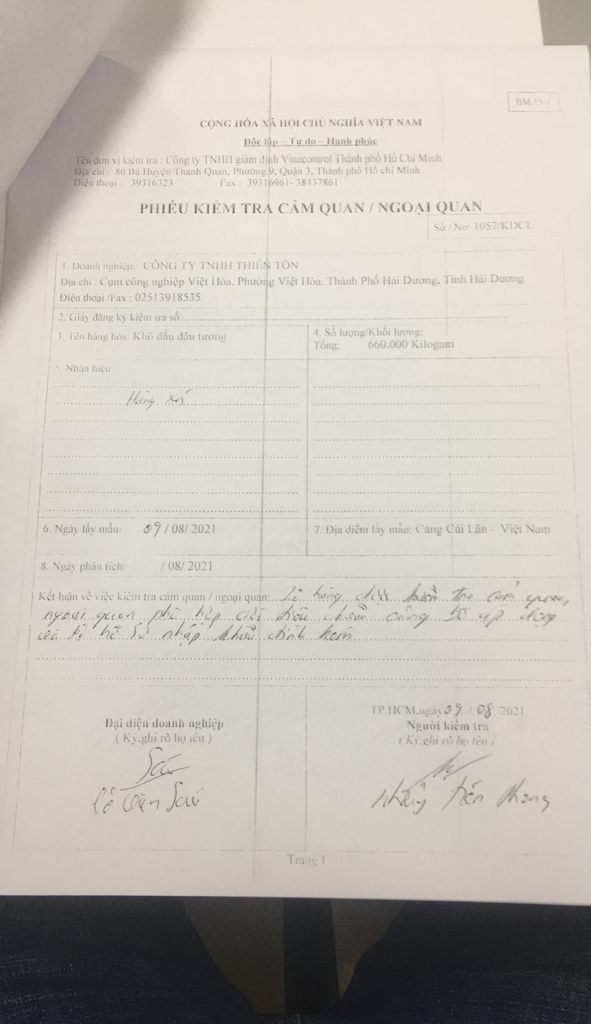 BM.15-1
CỘNG HÒA XÃ HỘI CHỦ NGHĨA VIỆT NAM
Độc lập – Tự do – Hạnh phúc
Tên đơn vị kiểm tra : Công ty TNHH giám định Vinacontrol Thành phố Hồ Chí Minh
Địa chỉ : 80 Bà Huyện Thanh Quan, Phường 9, Quận 3, Thành phố Hồ chí Minh
Điện thoại : 39316323 Fax : 39316961- 38437861
PHIẾU KIỂM TRA CẢM QUAN / NGOẠI QUAN
Số / No: 1057/KDCL
1. Doanh nghiệp: CÔNG TY TNHH THIÊN TÔN
Địa chỉ : Cụm công nghiệp Việt Hòa, Phường Việt Hòa, Thành Phố Hải Dương, Tỉnh Hải Dương
Điện thoại /Fax : 02513918535
2. Giấy đăng ký kiểm tra số:
3. Tên hàng hóa: Khô dầu đậu tương
4. Số lượng/Khối lượng:
Tổng: 660.000 Kilogam
5. Nhãn hiệu :
Hàng xá
6. Ngày lấy mẫu: 09 / 08/ 2021
7. Địa điểm lấy mẫu: Cảng Cái Lân – Việt Nam
8. Ngày phân tích: / 08/ 2021
Kết luận về việc kiểm tra cảm quan / ngoại quan: Lô hàng được kiểm tra cảm quan,
ngoại quan phù hợp với tiêu chuẩn công bố áp dụng
và hồ sơ nhập khẩu đính kèm
TP.HCM,ngày 09 / 08 /2021
Đại diện doanh nghiệp
( Ký,ghi rõ họ tên )
Người kiểm tra
( Ký,ghi rõ họ tên )
Sáu
Lê Văn Sáu
Tiến Phong
Trang 1